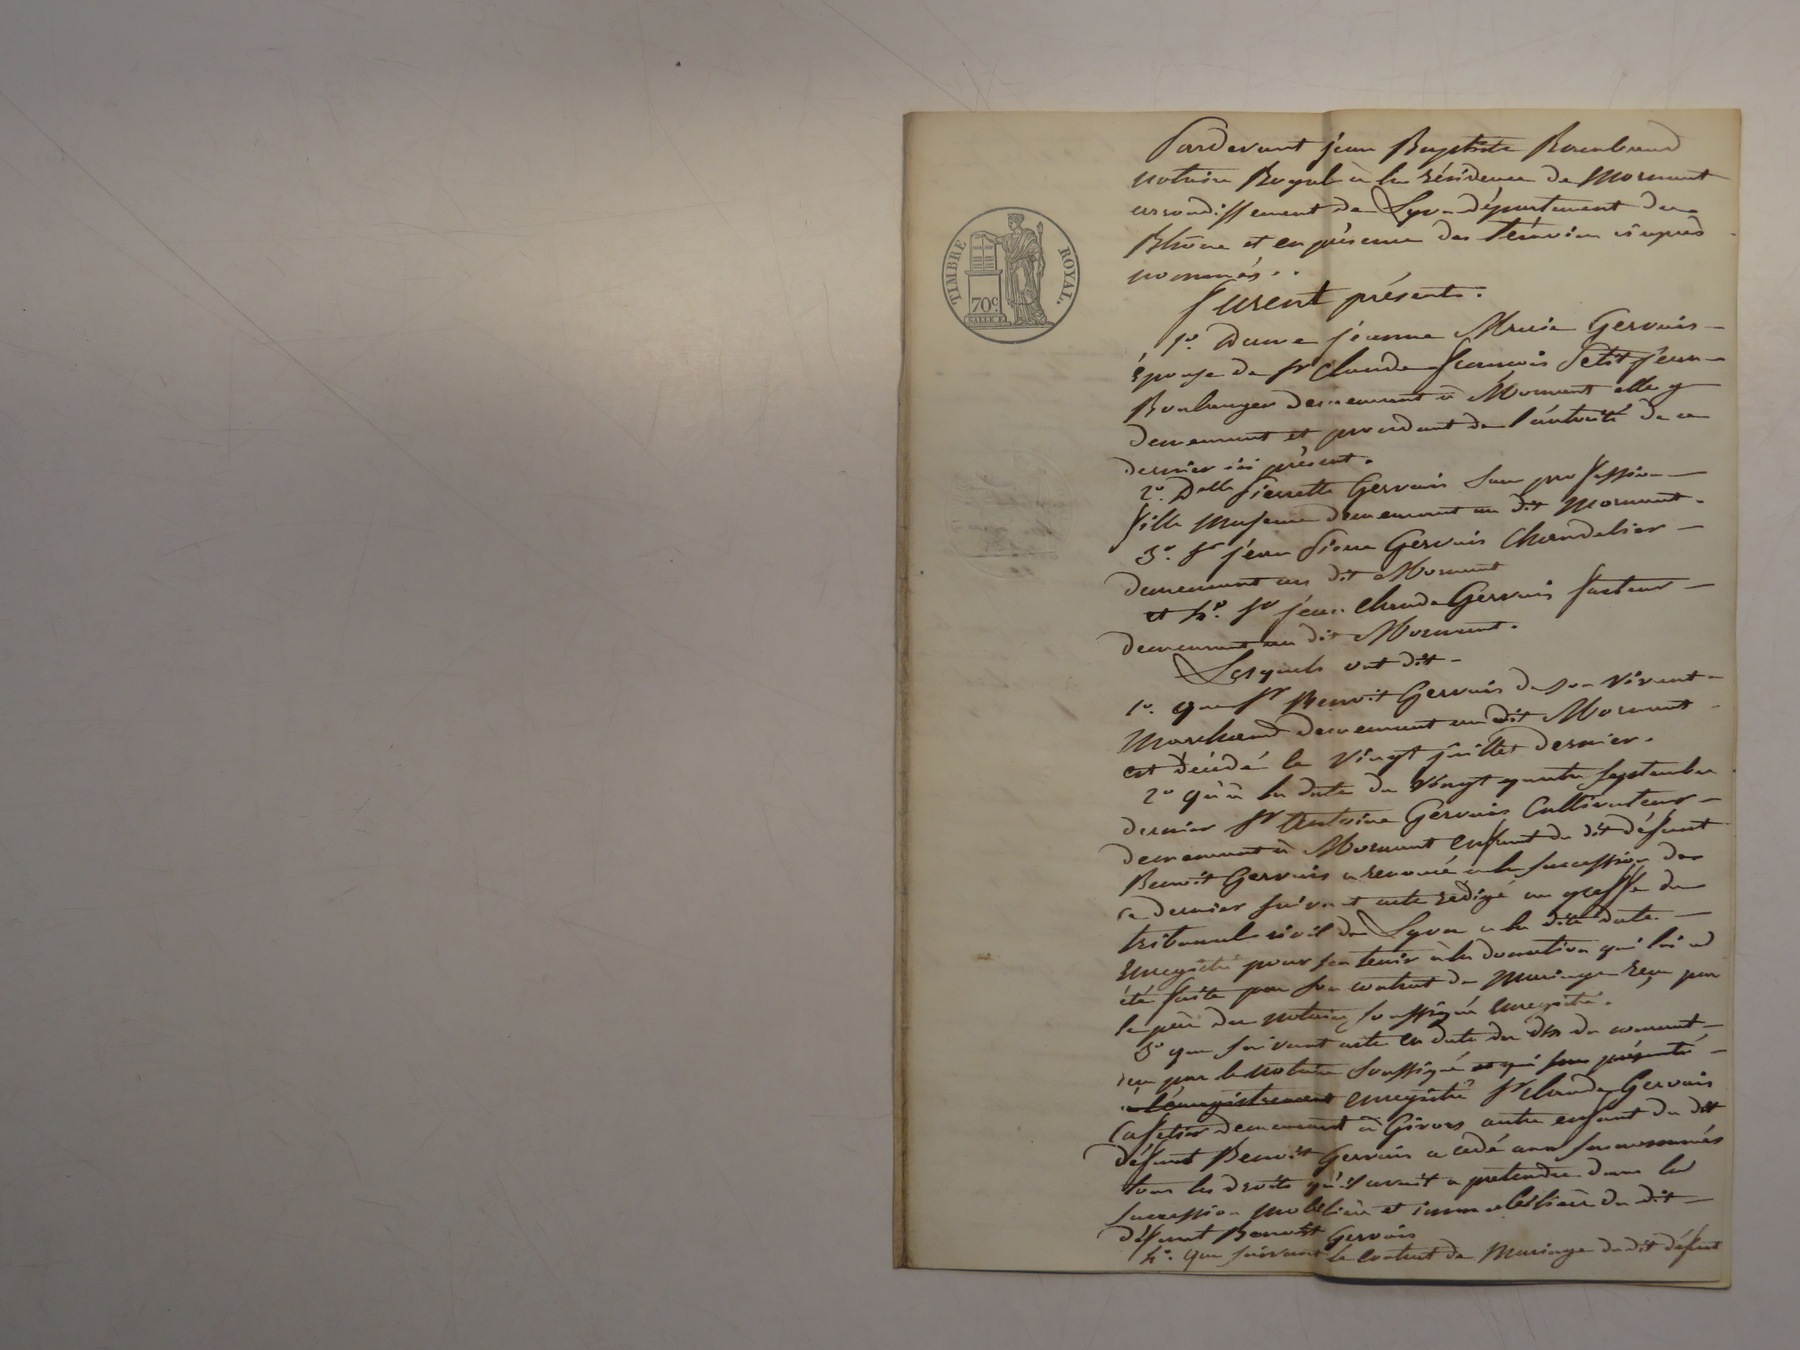 TIMBRE ROYAL.
70c.
Pardevant jean Baptiste Raimbaud
notaire Royal à la résidence de Mornant
arrondissement de Lyon département du
Rhône et en présence des témoins ci après
nommés..
furent présents.
1o. Dame jeanne Marie Gervais
épouse de Sr Claude françois Petitjean
Boulanger demeurant à Mornant elle y
demeurant et procédant de l'autorité de ce
dernier ici présent.
2o. Delle Pierrette Gervais sans profession
fille majeure demeurant au dit Mornant.
3o. Sr jean Pierre Gervais Chandelier
demeurant au dit Mornant
et 4o. Sr jean Claude Gervais facteur
demeurant au dit Mornant.
Lesquels ont dit
1o. que Sr Benoit Gervais de son vivant
Marchand demeurant au dit Mornant
est décédé le vingt juillet dernier.
2o qu'à la date du vingt quatre septembre
dernier Sr Antoine Gervais Cultivateur
demeurant à Mornant enfant du dit défunt
Benoit Gervais a renoncé à la succession de
ce dernier suivant acte rédigé au greffe du
tribunal civil de Lyon à la dite date.
Enregistré pour s'en tenir à la donation qui lui a
été faite par son contrat de Mariage reçu par
le père du notaire soussigné enregistré.
3o que suivant acte en date du dix du courant
reçu par le notaire soussigné et qui sera présenté
à l'enregistrement enregistré Sr Claude Gervais
Cafetier demeurant à Givors autre enfant du dit
défunt Benoit Gervais a cédé aux susnommés
tous les droits qu'il avait a prétendre dans la
succession mobilière et immobilière du dit
défunt Benoit Gervais
4o. que suivant le contrat de Mariage du dit défunt